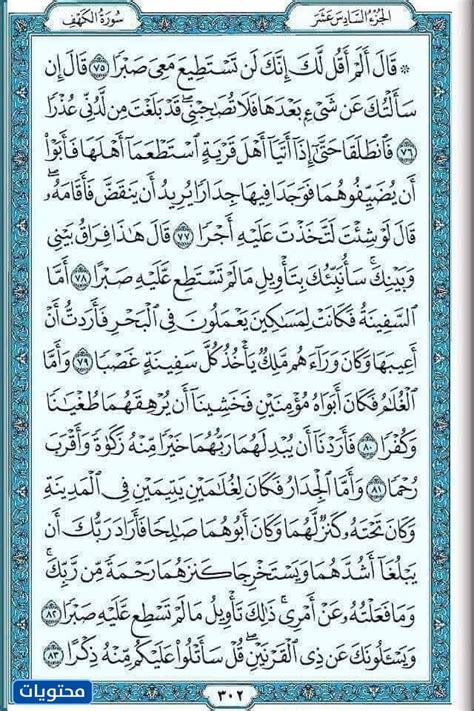 سُورَةُ الكَهْفِ
الجُزْءُ السَّادِسَ عَشَرَ
۞ قَالَ أَلَمْ أَقُل لَّكَ إِنَّكَ لَن تَسْتَطِيعَ مَعِىَ صَبْرًا ٧٥ قَالَ إِن
سَأَلْتُكَ عَن شَىْءٍۭ بَعْدَهَا فَلَا تُصَـٰحِبْنِى ۖ قَدْ بَلَغْتَ مِن لَّدُنِّى عُذْرًا
٧٦ فَٱنطَلَقَا حَتَّىٰٓ إِذَآ أَتَيَآ أَهْلَ قَرْيَةٍ ٱسْتَطْعَمَآ أَهْلَهَا فَأَبَوْا۟
أَن يُضَيِّفُوهُمَا فَوَجَدَا فِيهَا جِدَارًا يُرِيدُ أَن يَنقَضَّ فَأَقَامَهُۥ ۖ
قَالَ لَوْ شِئْتَ لَتَّخَذْتَ عَلَيْهِ أَجْرًا ٧٧ قَالَ هَـٰذَا فِرَاقُ بَيْنِى
وَبَيْنِكَ ۚ سَأُنَبِّئُكَ بِتَأْوِيلِ مَا لَمْ تَسْتَطِع عَّلَيْهِ صَبْرًا ٧٨ أَمَّا
ٱلسَّفِينَةُ فَكَانَتْ لِمَسَـٰكِينَ يَعْمَلُونَ فِى ٱلْبَحْرِ فَأَرَدتُّ أَنْ
أَعِيبَهَا وَكَانَ وَرَآءَهُم مَّلِكٌ يَأْخُذُ كُلَّ سَفِينَةٍ غَصْبًا ٧٩ وَأَمَّا
ٱلْغُلَـٰمُ فَكَانَ أَبَوَاهُ مُؤْمِنَيْنِ فَخَشِينَآ أَن يُرْهِقَهُمَا طُغْيَـٰنًا
وَكُفْرًا ٨٠ فَأَرَدْنَآ أَن يُبْدِلَهُمَا رَبُّهُمَا خَيْرًا مِّنْهُ زَكَوٰةً وَأَقْرَبَ
رُحْمًا ٨١ وَأَمَّا ٱلْجِدَارُ فَكَانَ لِغُلَـٰمَيْنِ يَتِيمَيْنِ فِى ٱلْمَدِينَةِ
وَكَانَ تَحْتَهُۥ كَنزٌ لَّهُمَا وَكَانَ أَبُوهُمَا صَـٰلِحًا فَأَرَادَ رَبُّكَ أَن
يَبْلُغَآ أَشُدَّهُمَا وَيَسْتَخْرِجَا كَنزَهُمَا رَحْمَةً مِّن رَّبِّكَ ۚ
وَمَا فَعَلْتُهُۥ عَنْ أَمْرِى ۚ ذَٰلِكَ تَأْوِيلُ مَا لَمْ تَسْطِع عَّلَيْهِ صَبْرًا ٨٢
وَيَسْـَٔلُونَكَ عَن ذِى ٱلْقَرْنَيْنِ ۖ قُلْ سَأَتْلُوا۟ عَلَيْكُم مِّنْهُ ذِكْرًا ٨٣
٣٠٢
محتويات